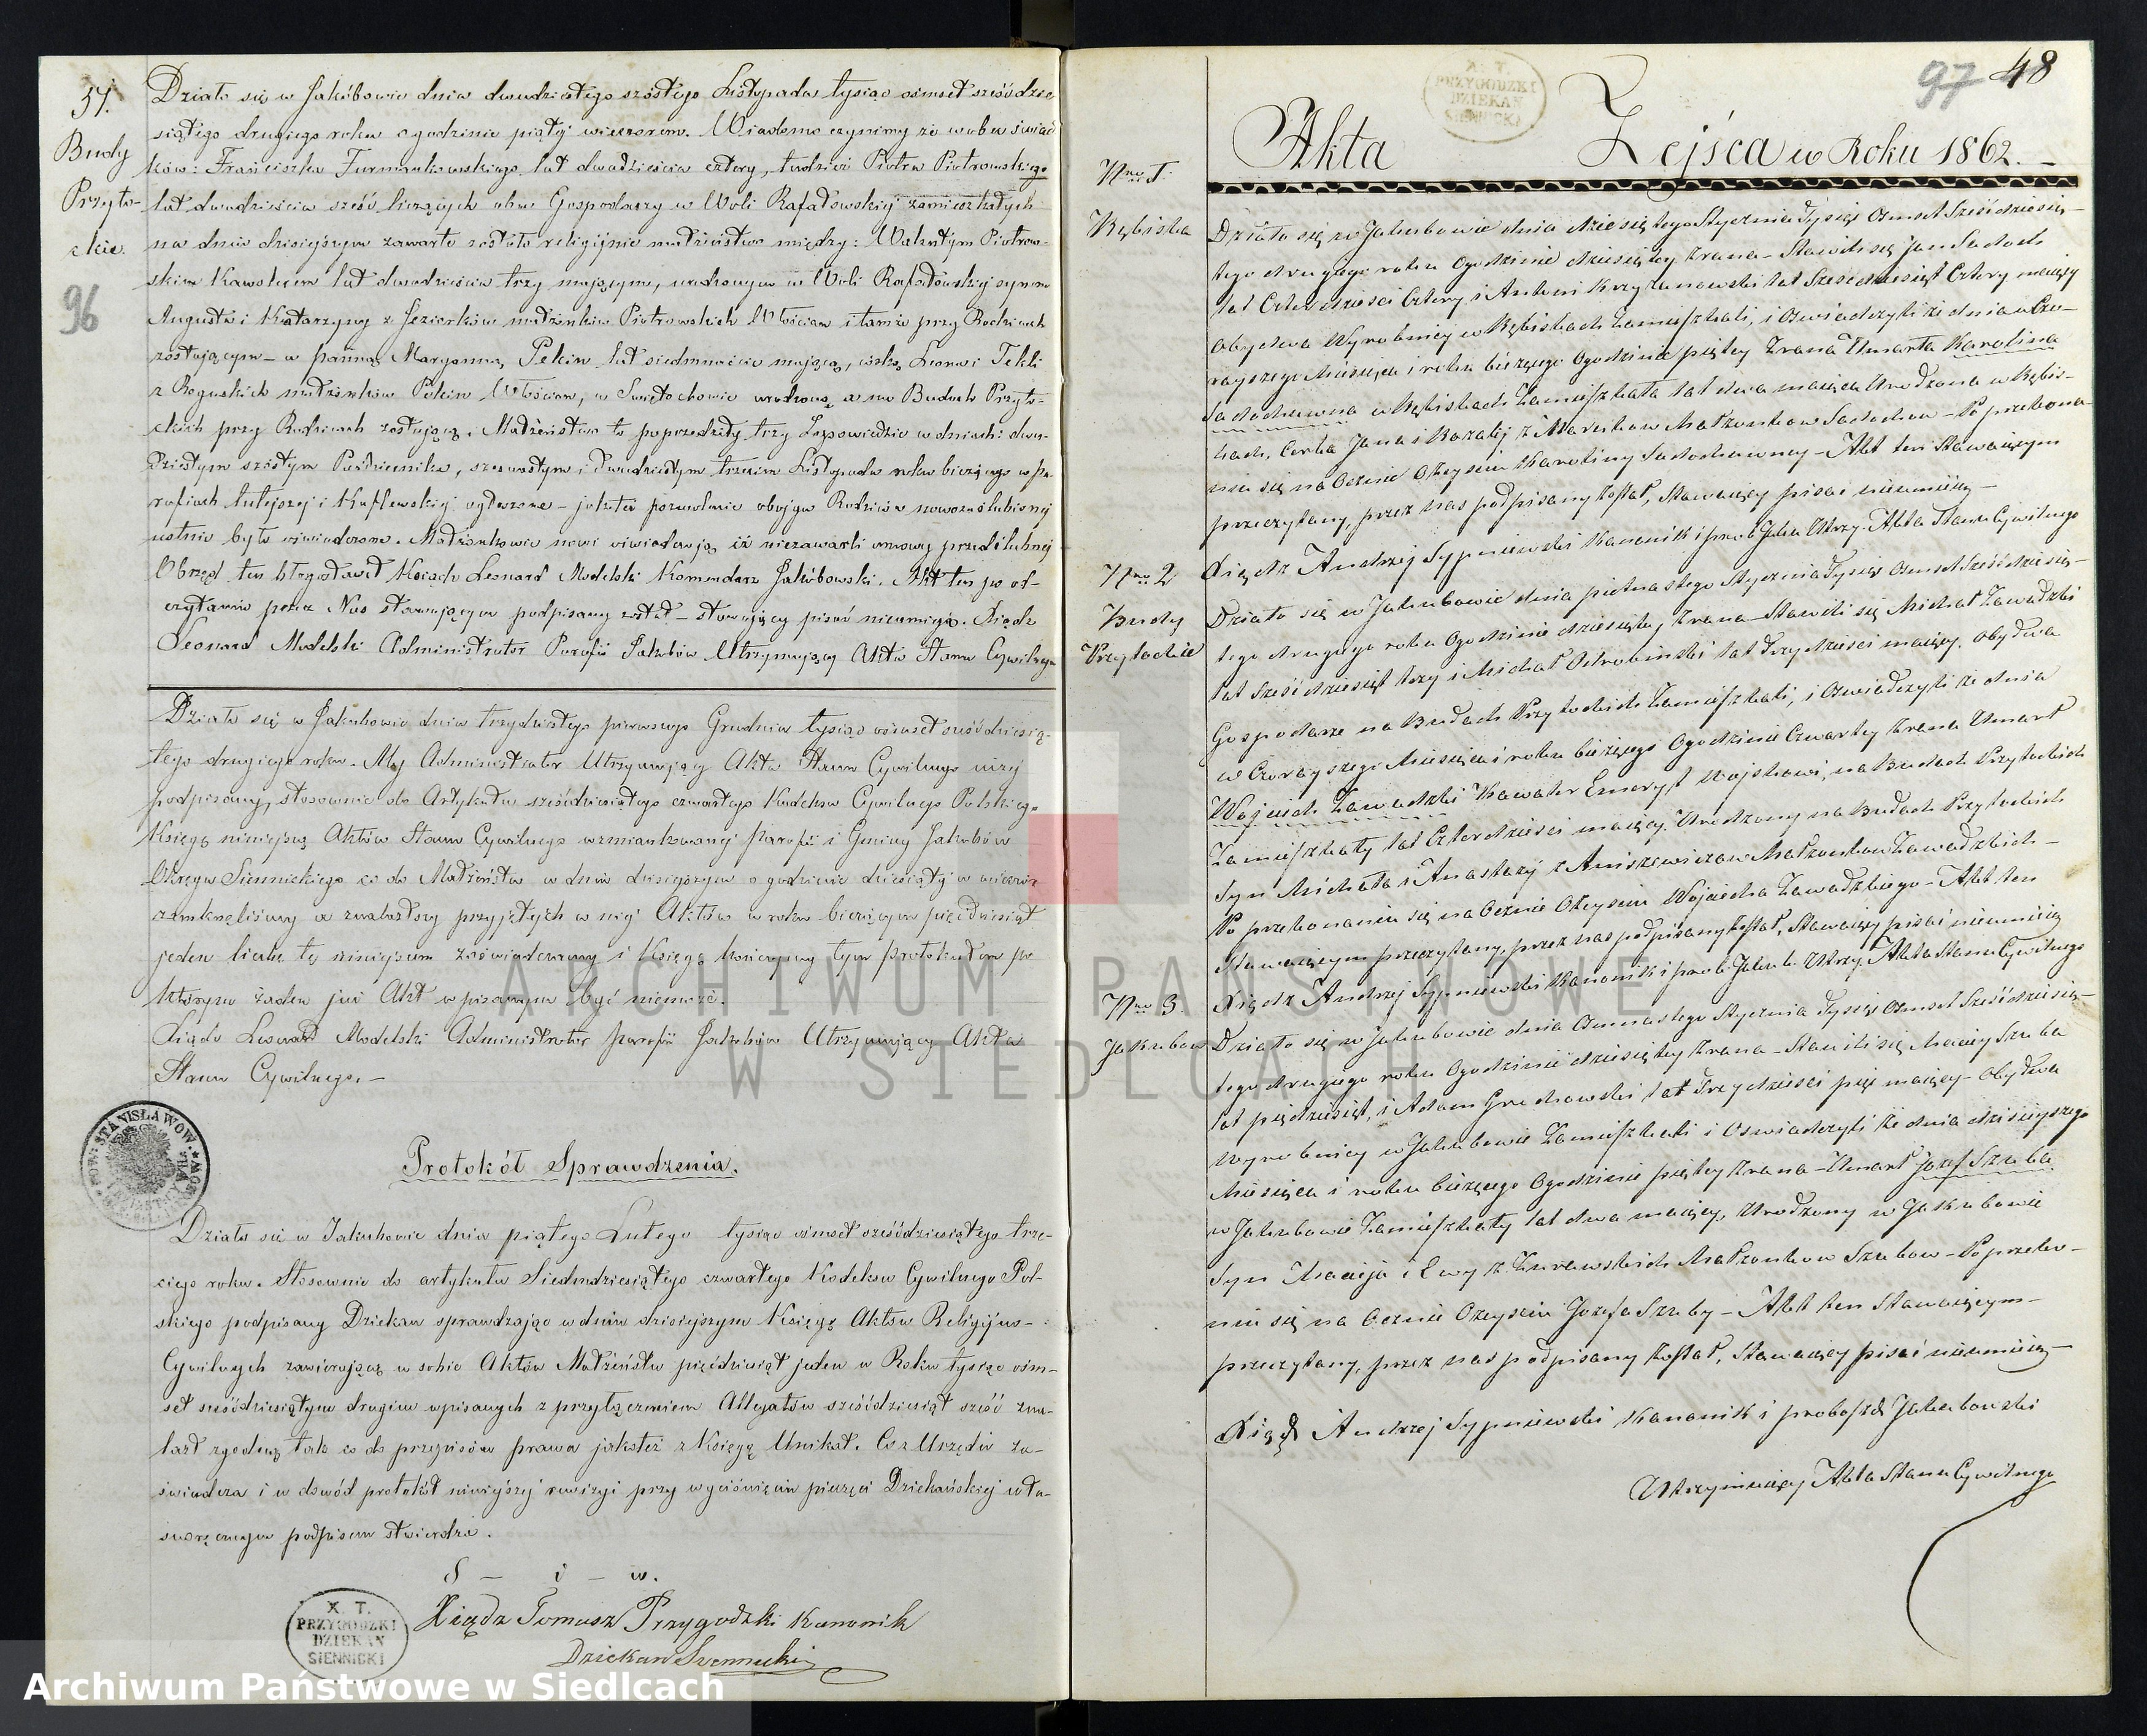 51.
Budy
Przyto-
ckie.
96
Działo się w Jakóbowie dnia dwudziestego szóstego Listopada tysiąc ośmset sześćdzie
siątego drugiego roku o godzinie piątéj wieczorem. Wiadomo czynimy że wobec świad
ków: Franciszka Furmankowskiego lat dwadzieścia cztery, tudzież Piotra Piotrowskiego
lat dwadzieścia sześć liczących obu Gospodarzy w Woli Rafałowskiéj zamieszkałych
na dniu dzisiejszym zawarte zostało religijnie małżeństwo między: Walentym Piotrow-
skim Kawalerem lat dwadzieścia trzy mającym, urodzonym w Woli Rafałowskiéj synem
Augusta i Katarzyny z Jezierków małżonków Piotrowskich Włościan i tamże przy Rodzicach
zostającym - a panną Maryanną Pekin lat siedmnaście mającą, córką Leona i Tekli
z Roguskich małżonków Pekin Włościan, w Świętochowie urodzoną a na Budach Przyto-
ckich przy Rodzicach zostającą. Małżeństwo to poprzedziły trzy Zapowiedzie w dniach: dwu-
dziestym szóstym Października, szesnastym i dwudziestym trzecim Listopada roku bieżącego w pa-
rafiach tutejszéj i Kuflewskiéj ogłoszone - jakoteż pozwolenie obojga Rodziców nowozaślubionéj
ustnie było oświadczone. Małżonkowie nowi oświadczają iż niezawarli umowy przedślubnéj
Obrzęd ten błogosławił Ksiądz Leonard Modelski Komendarz Jakóbowski. Akt ten po od-
czytaniu przez Nas stawającym podpisany został - stawający pisać nieumieją. Ksiądz
Leonard Modelski Administrator Parafii Jakubów Utrzymujący Akta Stanu Cywilnego
Działo się w Jakubowie dnia trzydziestego pierwszego Grudnia tysiąc ośmset sześćdziesią-
tego drugiego roku. My Administrator Utrzymujący Akta Stanu Cywilnego niżéj
podpisany, stosownie do Artykułu sześćdziesiątego czwartego Kodeksu Cywilnego Polskiego
Księgę niniejszą Aktów Stanu Cywilnego wzmiankowanéj Parafii i Gminy Jakubów
Okręgu Siennickiego co do Małżeństw w dniu dzisiejszym o godzinie dziesiątéj w wieczór
zamknęliśmy a znalazłszy przyjętych w niéj Aktów w roku bieżącym pięćdziesiąt
jeden liczbę tę niniejszem zaświadczamy i Księgę kończymy tym protokułem po
którym żaden już Akt wpisanym być niemoże.
Ksiądz Leonard Modelski Administrator Parafii Jakubów Utrzymujący Akta
Stanu Cywilnego. -
Protokół Sprawdzenia.
Działo się w Jakubowie dnia piątego Lutego tysiąc ośmset sześćdziesiątego trze-
ciego roku. Stosownie do artykułu Siedmdziesiątego czwartego Kodeksu Cywilnego Pol-
skiego podpisany Dziekan sprawdzając w dniu dzisiejszym Księgę Aktów Religijno-
Cywilnych zawierającą w sobie Aktów Małżeństw pięćdziesiąt jeden w Roku tysiąc ośm-
set sześćdziesiątym drugim wpisanych z przyłączeniem Allegatów sześćdziesiąt sześć zna-
lazł zgodną tak co do przepisów prawa jakoteż z Księgą Unikat. Co z Urzędu za-
świadcza i w dowód protokół niniejszéj rewizyi przy wyciśnięciu pieczęci Dziekańskiéj wła-
snoręcznym podpisem stwierdza.
Xiądz Tomasz Przygodzki Kanonik
Dziekan Siennicki
X. T.
PRZYGODZKI
DZIEKAN
SIENNICKI
97 48
X. T.
PRZYGODZKI
DZIEKAN
SIENNICKI
Akta Zejścia w Roku 1862. -
Nro 1.
Rębiska
Działo się w Jakubowie dnia dziesiątego Stycznia Tysiąc Ośmset Sześćdziesią-
tego drugiego roku Ogodzinie dziesiątey z rana - Stawili się Jan Sadoch
lat Czterdzieści Cztery i Antoni Krzyżanowski lat Sześćdziesiąt Cztery maiący
obydwa Wyrobnicy w Rębiskach Zamieszkali, i Oświadczyli że dnia wczo-
rayszego Miesiąca i roku bieżącego Ogodzinie piątey z rana Umarła Karolina
Sadochówna w Rębiskach Zamieszkała lat dwa maiąca Urodzona w Rębis-
kach, Córka Jana i Rozalij z Marcików Małżonków Sadochów - Po przekona-
niu się na Ocznie O Zeyściu Karoliny Sadochówney - Akt ten Stawaiącym
przeczytany, przez nas podpisany został, Stawaiący pisać nieumieią -
Xiądz Andrzej Sypniewski Kanonik i prob Jakub. Utrzy. Akta Stanu Cywilnego
Nro 2
Budy
Przytockie
Działo się w Jakubowie dnia piętnastego Stycznia Tysiąc Ośmset Sześćdziesią-
tego drugiego roku Ogodzinie dziesiątey z rana - Stawili się Michał Zawadzki
lat Sześćdziesiąt trzy i Michał Ostrowiński lat Trzydzieści maiący, obydwa
Gospodarze na Budach Przytockich Zamieszkali, i Oświadczyli że dnia
wczorayszego Miesiąca i roku bieżącego Ogodzinie Czwartey z rana Umarł
Woyciech Zawadzki Kawaler Emeryt woyskowi, na Budach Przytockich
Zamieszkały lat Czterdzieści maiący, Urodzony na Budach Przytockich
Syn Michała i Anastazij z Aniszewiczów Małżonków Zawadzkich -
Po przekonaniu się na Ocznie O Zeyściu Woyciecha Zawadzkiego - Akt ten
Stawaiącym przeczytany, przez nas podpisany został, Stawaiący pisać nieumieią
Xiądz Andrzej Sypniewski Kanonik i prob. Jakub. Utrzy. Akta Stanu Cywilnego
Nro 3.
Jakubów
Działo się w Jakubowie dnia Ośmnastego Stycznia Tysiąc Ośmset Sześćdziesią-
tego drugiego roku Ogodzinie dziesiątey z rana - Stawili się Maciey Szruba
lat pięćdziesiąt, i Adam Grochowski lat Trzydzieści pięć maiący - obydwa
wyrobnicy w Jakubowie Zamieszkali i Oświadczyli że dnia dzisieyszego
Miesiąca i roku bieżącego Ogodzinie piątey z rana - Umarł Jozef Szruba
w Jakubowie Zamieszkały lat dwa maiący, Urodzony w Jakubowie
Syn Macieja i Ewy z Żurawskich Małżonków Szrubów - Po przeko-
niu się na Ocznie O Zeyściu Jozefa Szruby - Akt ten Stawaiącym -
przeczytany, przez nas podpisany został, Stawaiący pisać nieumieią -
Xiądz Andrzej Sypniewski Kanonik i proboszcz Jakubowski
Utrzymuiący Akta Stanu Cywilnego
ARCHIWUM PAŃSTWOWE
W SIEDLCACH
Archiwum Państwowe w Siedlcach